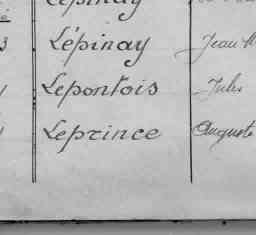 3 Lépinay Jean
Lepontois Jules
Leprince Auguste